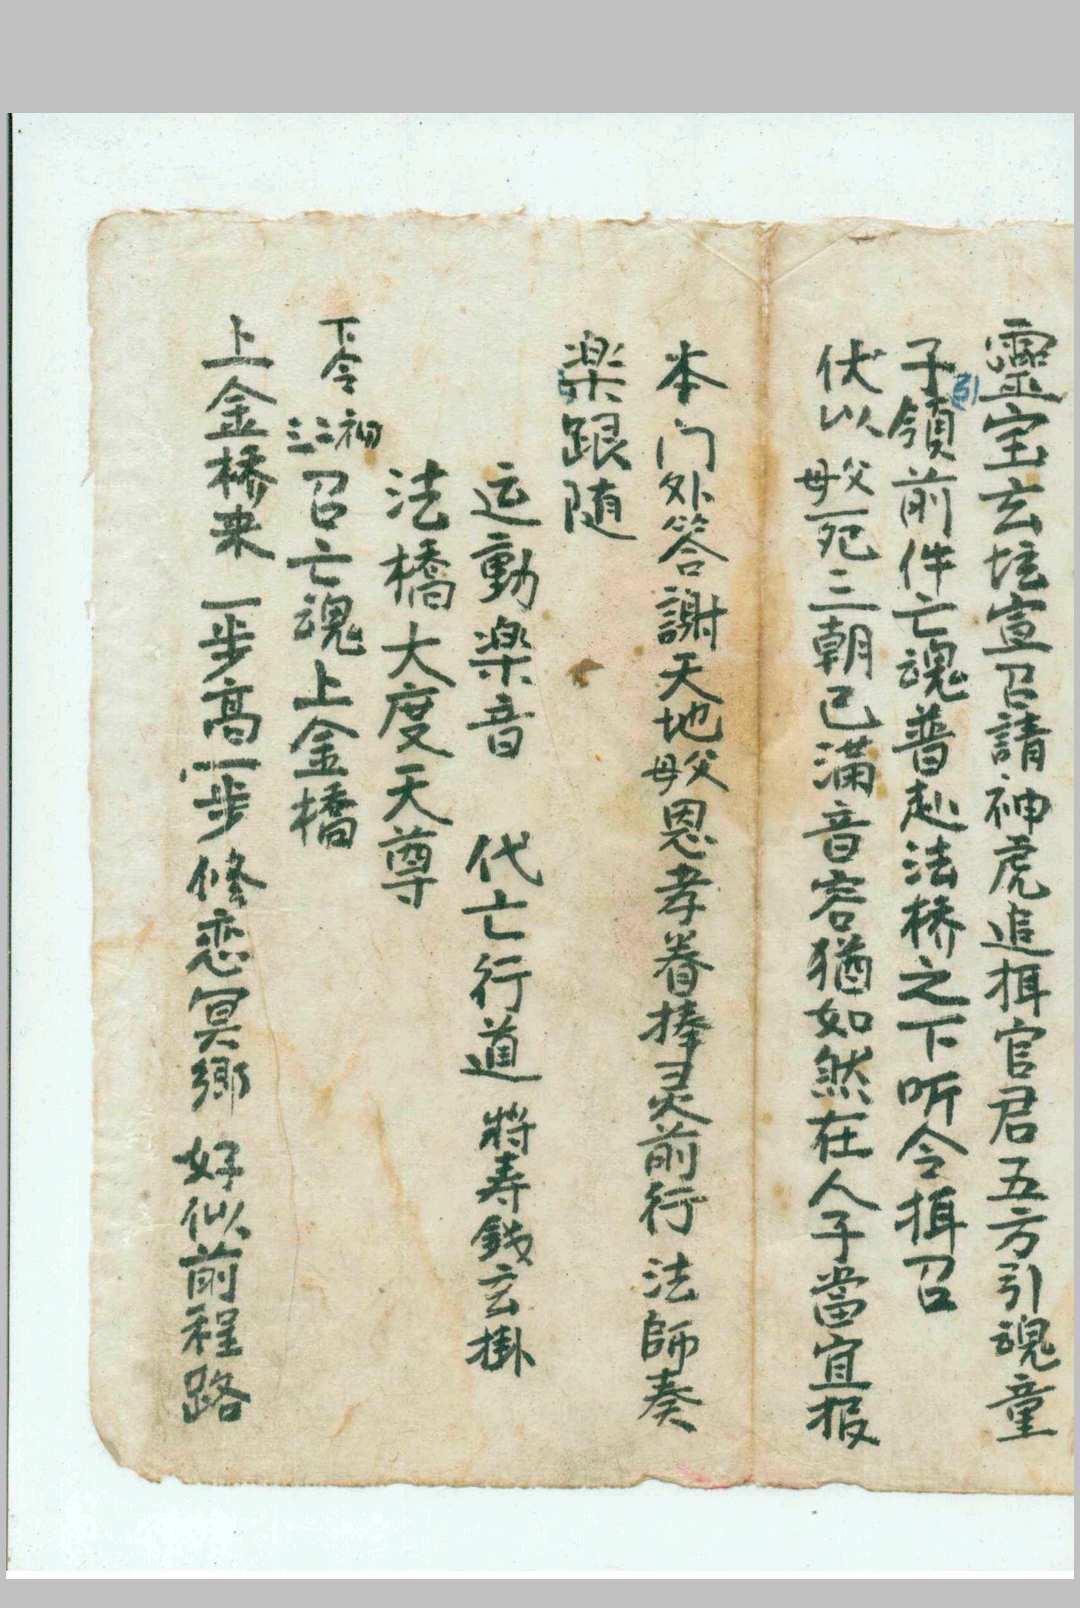 靈宝玄坛宣召請神虎追揖官君五方引魂童
子領前件亡魂普赴法桥之下听令揖召
引
伏以父母死三朝已滿音容猶如然在人子當宜报
本门外答謝天地父母恩孝眷捧灵前行 法師奏
楽跟随
运動楽音 代亡行道 將寿錢玄掛
法橋大度天尊
下令 初二三召亡魂上金橋
上金桥来 一步高一步 修恋冥鄉 好似前程路